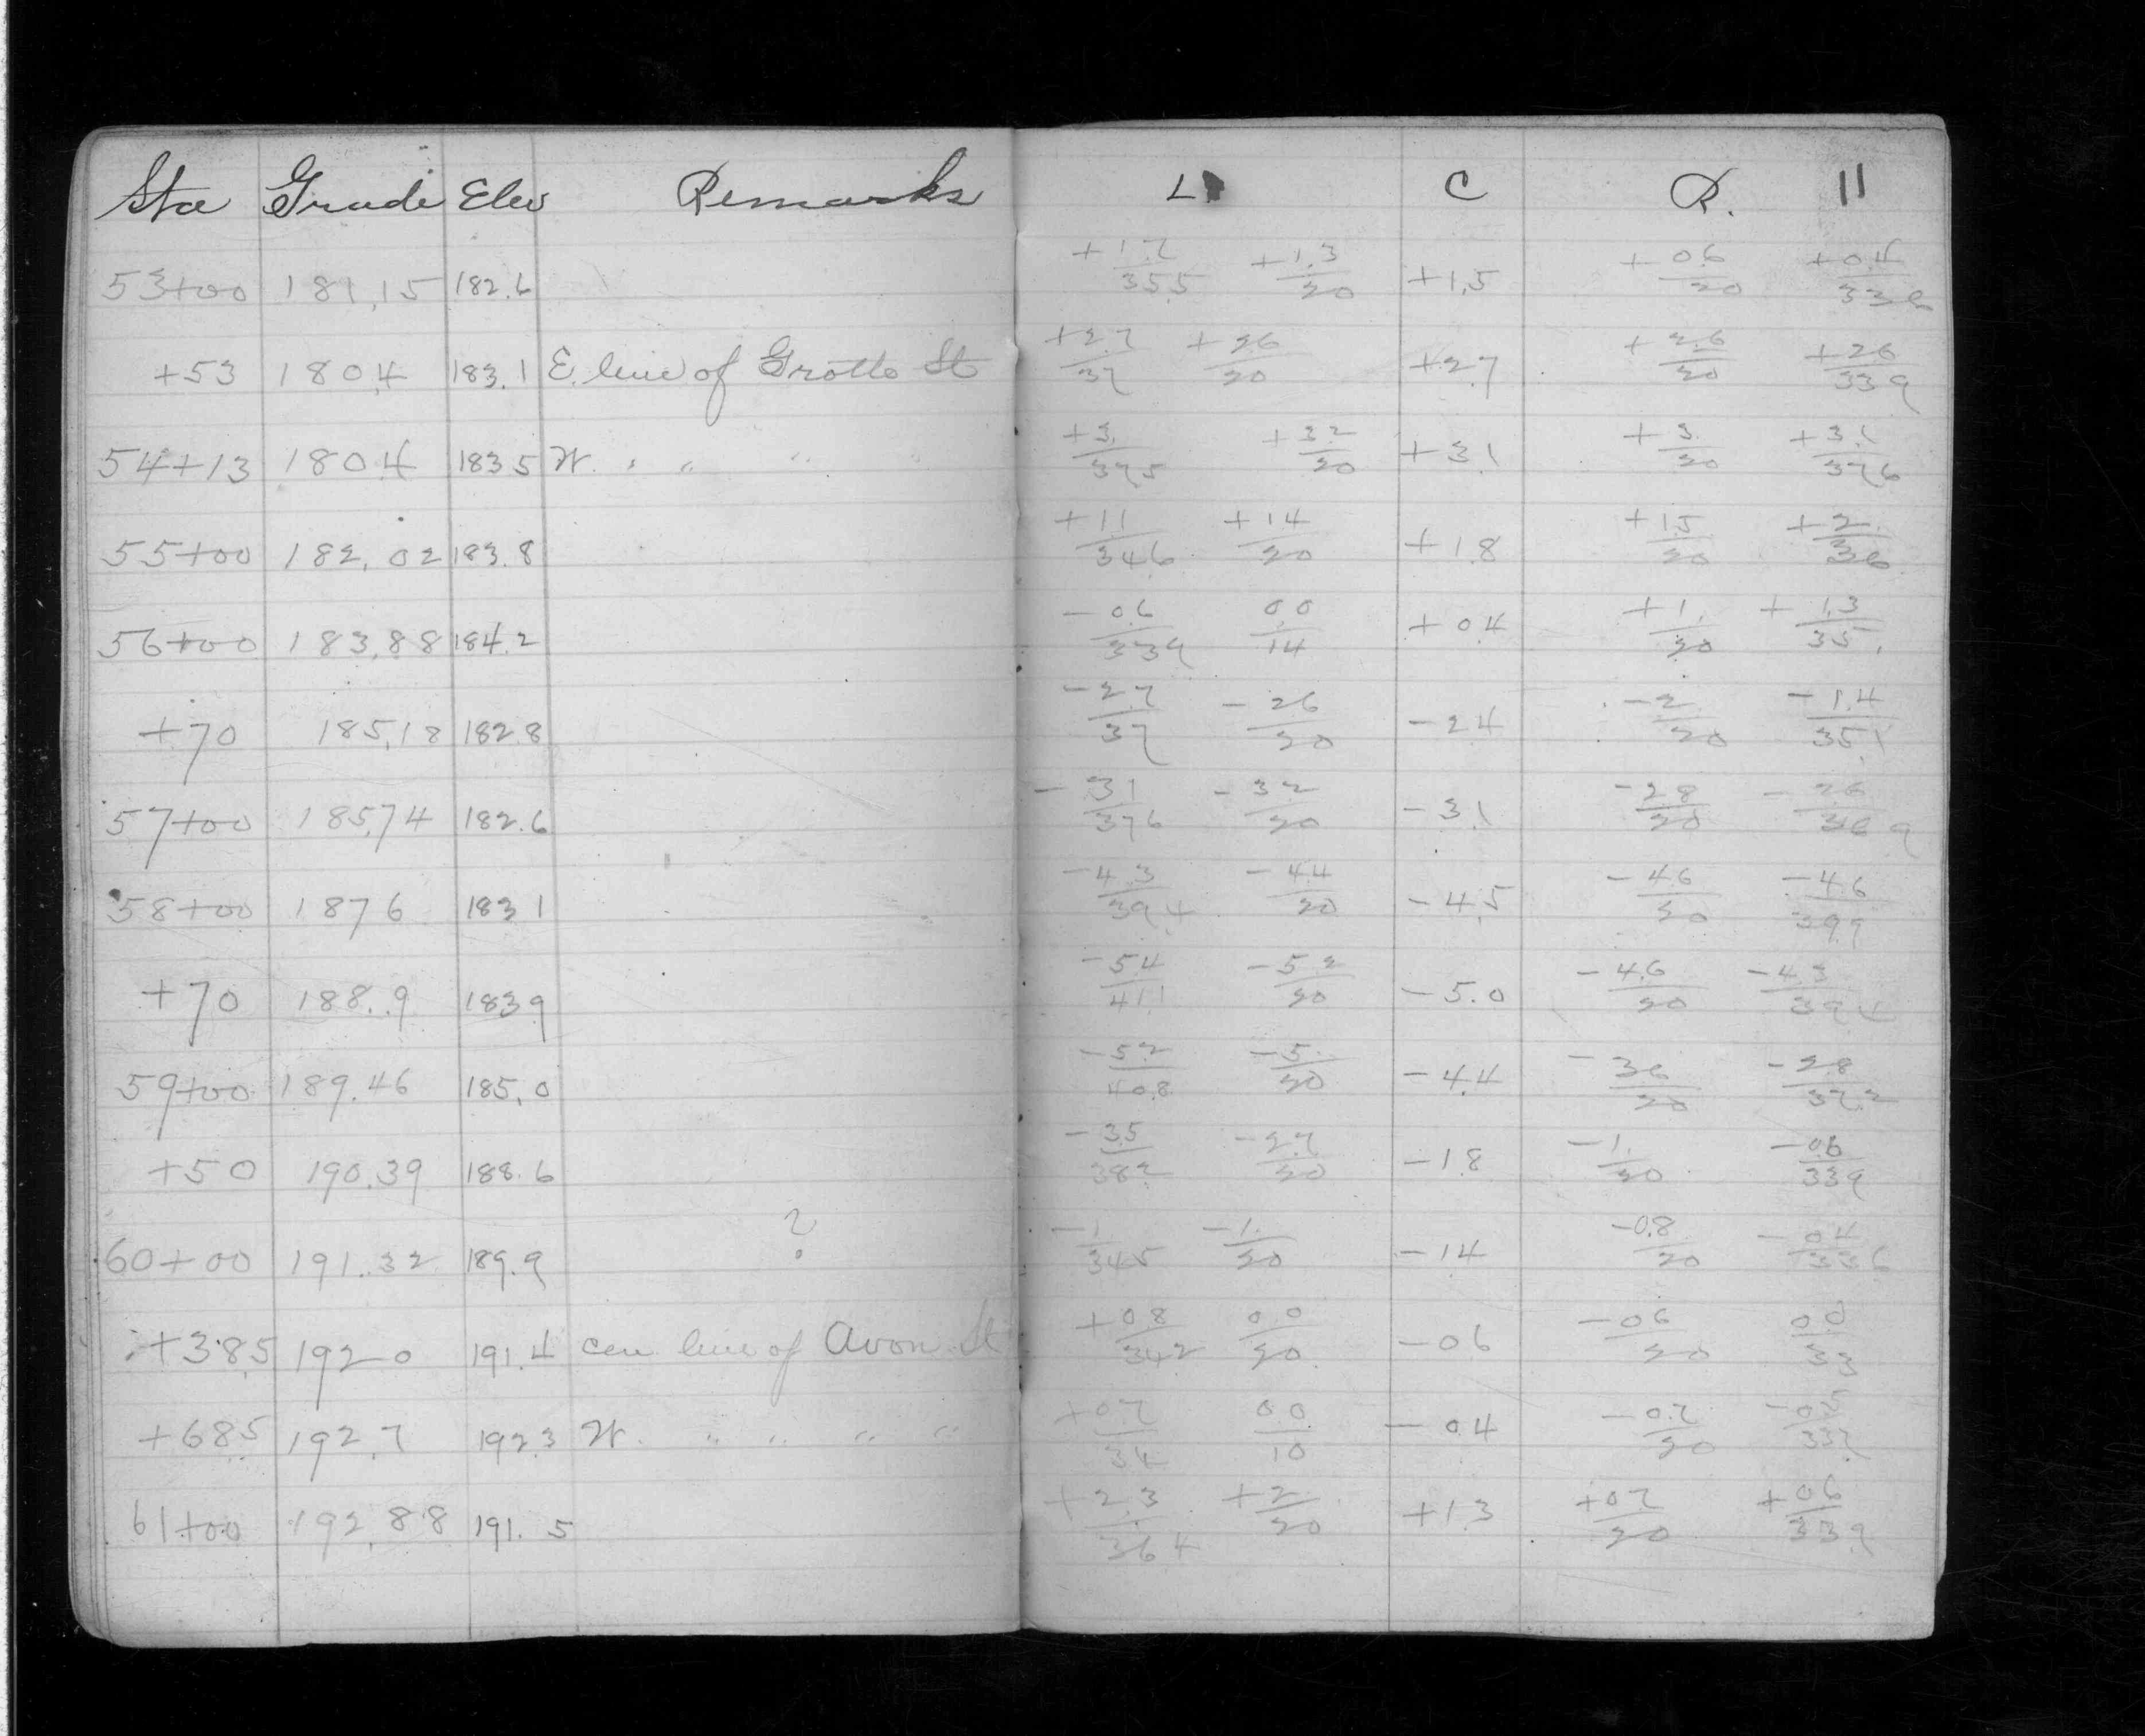 Sta Grade Elev Remarks L C R. 11
53+00 181.15 182.6 +1.7/35.5 +1.3/20 +1.5 +0.6/20 +0.4/33.6
+53 180.4 183.1 E. line of Grotto St +2.7/37 +2.6/20 +2.7 +2.6/20 +2.6/33 9
54+13 180.4 183.5 W. " " " +3./37.5 +3.2/20 +3.1 +3./20 +3.1/37.6
55+00 182.02 183.8 +1.1/34.6 +1.4/20 +1.8 +1.5/20 +2./36
56+00 183.88 184.2 -0.6/33.9 0.0/14 +0.4 +1./20 +1.3/35.
+70 185.18 182.8 -2.7/37 -2.6/20 -2.4 -2./20 -1.4/35.1
57+00 185.74 182.6 -3.1/37.6 -3.2/20 -3.1 -2.8/20 -2.6/36 9
58+00 187.6 183.1 -4.3/39.4 -4.4/20 -4.5 -4.6/20 -4.6/39.9
+70 188.9 183.9 -5.4/41.1 -5.2/20 -5.0 -4.6/20 -4.3/39.4
59+00 189.46 185.0 -5.2/40.8 -5./20 -4.4 -3.6/20 -2.8/37.2
+50 190.39 188.6 -3.5/38.2 -2.7/20 -1.8 -1./20 -0.6/33.9
60+00 191.32 189.9 ? -1/34.5 -1./20 -1.4 -0.8/20 -0.4/33.6
+38.5 192.0 191.4 cen line of Avon St +0.8/34.2 0.0/20 -0.6 -0.6/20 0.0/33
+68.5 192.7 192.3 W. " " " " +0.7/34 0.0/10 -0.4 -0.7/20 -0.5/33.7
61+00 192.88 191.5 +2.3/36.4 +2./20 +1.3 +0.7/20 +0.6/33.9